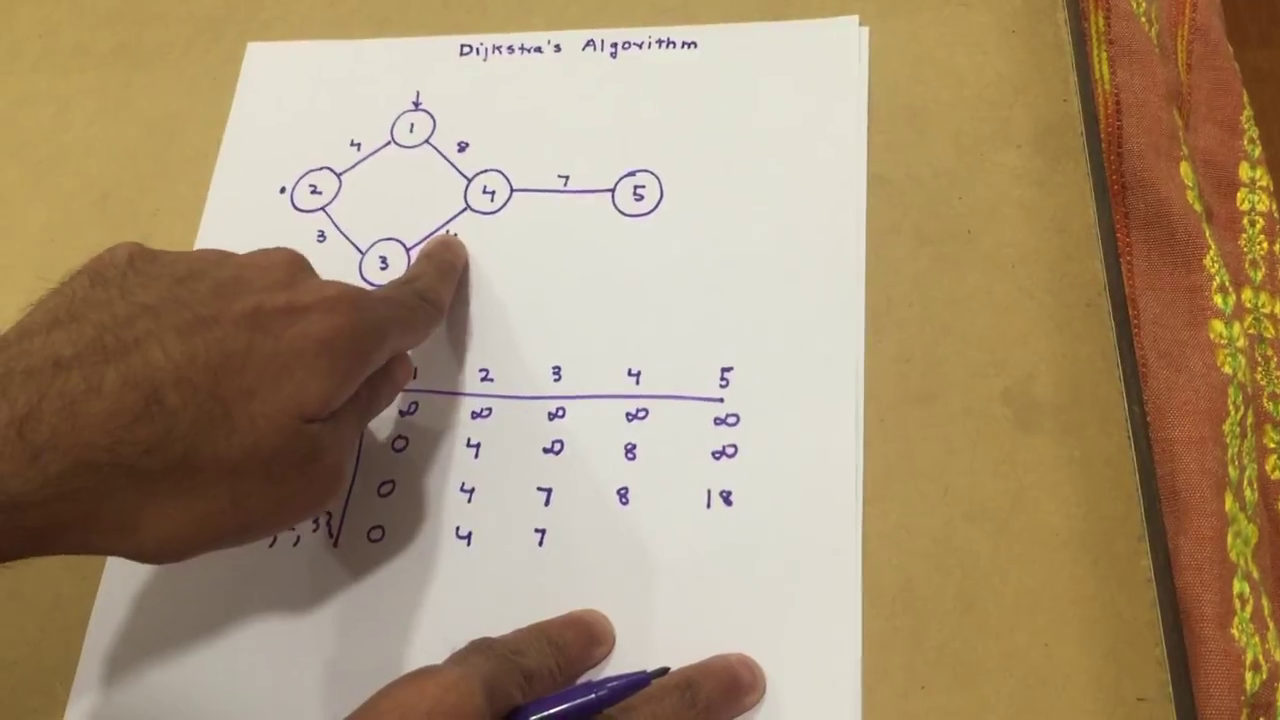 Dijkstra's Algorithm
1
4 8
2 4 7 5
3
3
1 2 3 4 5
∞ ∞ ∞ ∞ ∞
0 4 ∞ 8 ∞
0 4 7 8 18
, 3} 0 4 7